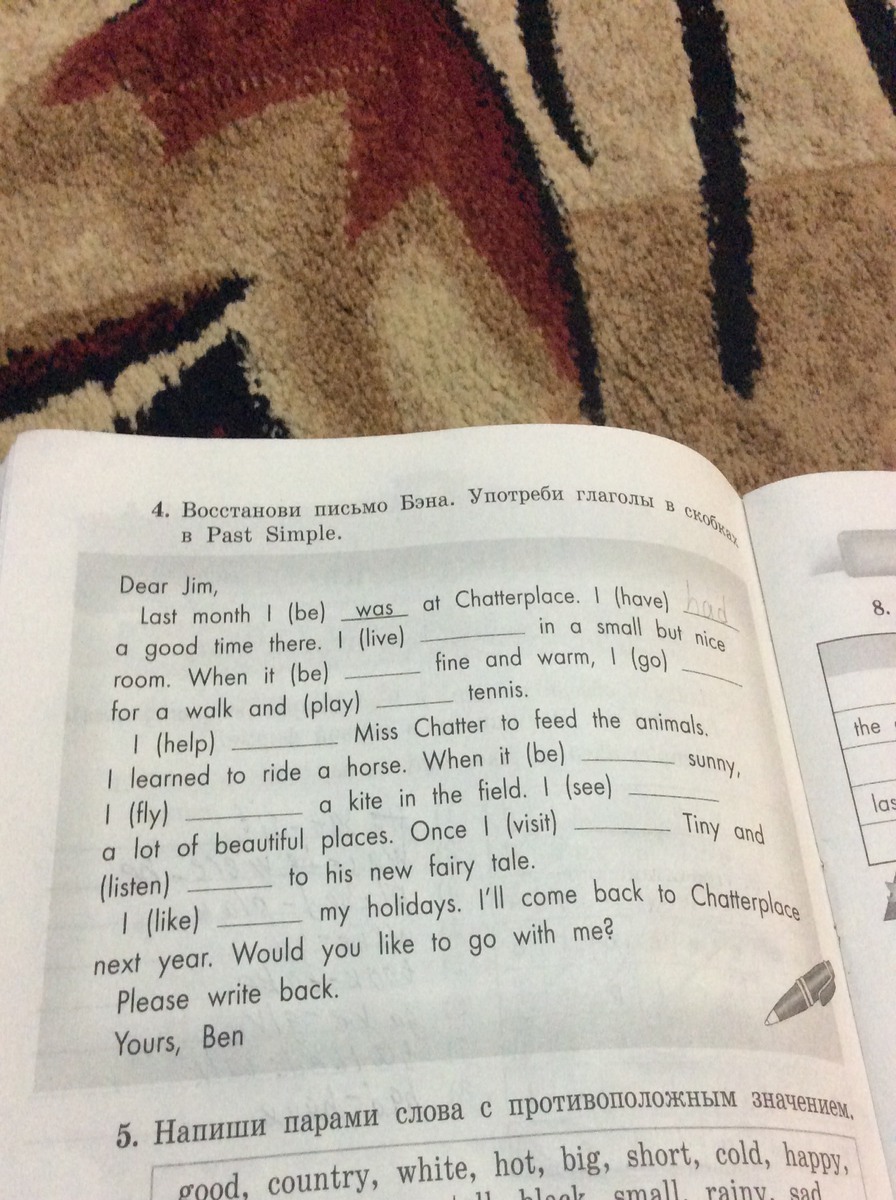 4. Восстанови письмо Бэна. Употреби глаголы в скобках
в Past Simple.
Dear Jim,
Last month I (be) was at Chatterplace. I (have) had
a good time there. I (live) ________ in a small but nice
room. When it (be) ________ fine and warm, I (go) ________
for a walk and (play) ________ tennis.
I (help) ________ Miss Chatter to feed the animals.
I learned to ride a horse. When it (be) ________ sunny,
I (fly) ________ a kite in the field. I (see) ________
a lot of beautiful places. Once I (visit) ________ Tiny and
(listen) ________ to his new fairy tale.
I (like) ________ my holidays. I'll come back to Chatterplace
next year. Would you like to go with me?
Please write back.
Yours, Ben
5. Напиши парами слова с противоположным значением.
good, country, white, hot, big, short, cold, happy,
black, small, rainy, sad
8.
the